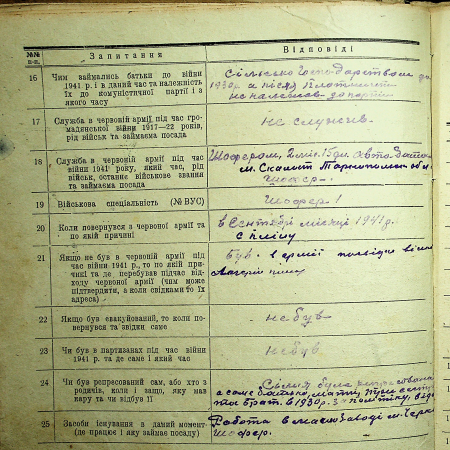 №№ п-п.
Запитання
Відповіді
16
Чим займались батьки до війни
1941 р. і в даний час та належність
їх до комуністичної партії і з
якого часу
Сільсько господарством до
1930р. а після
не належав до партії
17
Служба в червоній армії під час гро-
мадянської війни 1917—22 років,
рід військ та займаєма посада
не служив
18
Служба в червоній армії під час
війни 1941 року, який час, рід
військ, останнє військове звання
та займаєма посада
Шофером, 2 міс. 15 дн. автобата
м. Скалат обл.
Шофер.
19
Військова спеціальність (№ ВУС)
Шофер 1
20
Коли повернувся з червоної армії та
по якій причині
в Сентябрі місяці 1941 р.
с пліну
21
Якщо не був в червоній армії під
час війни 1941 р., то по якій при-
чині та де перебував підчас від-
ходу червоної армії (чим може
підтвердити, а коли свідками то їх
адреса)
був в армії
22
Якщо був евакуйований, то коли по-
вернувся та звідки саме
не був
23
Чи був в партизанах під час війни
1941 р. та де саме і який час
не був
24
Чи був репресований сам, або хто з
родичів, коли і защо, яку мав
кару та чи відбув її
Сімія була репресована
а саме батько, мати,
брат. в 1930 р. з
25
Засоби існування в даний момент
(де працює і яку займає посаду)
Робота в маслозаводі м.
шофер.